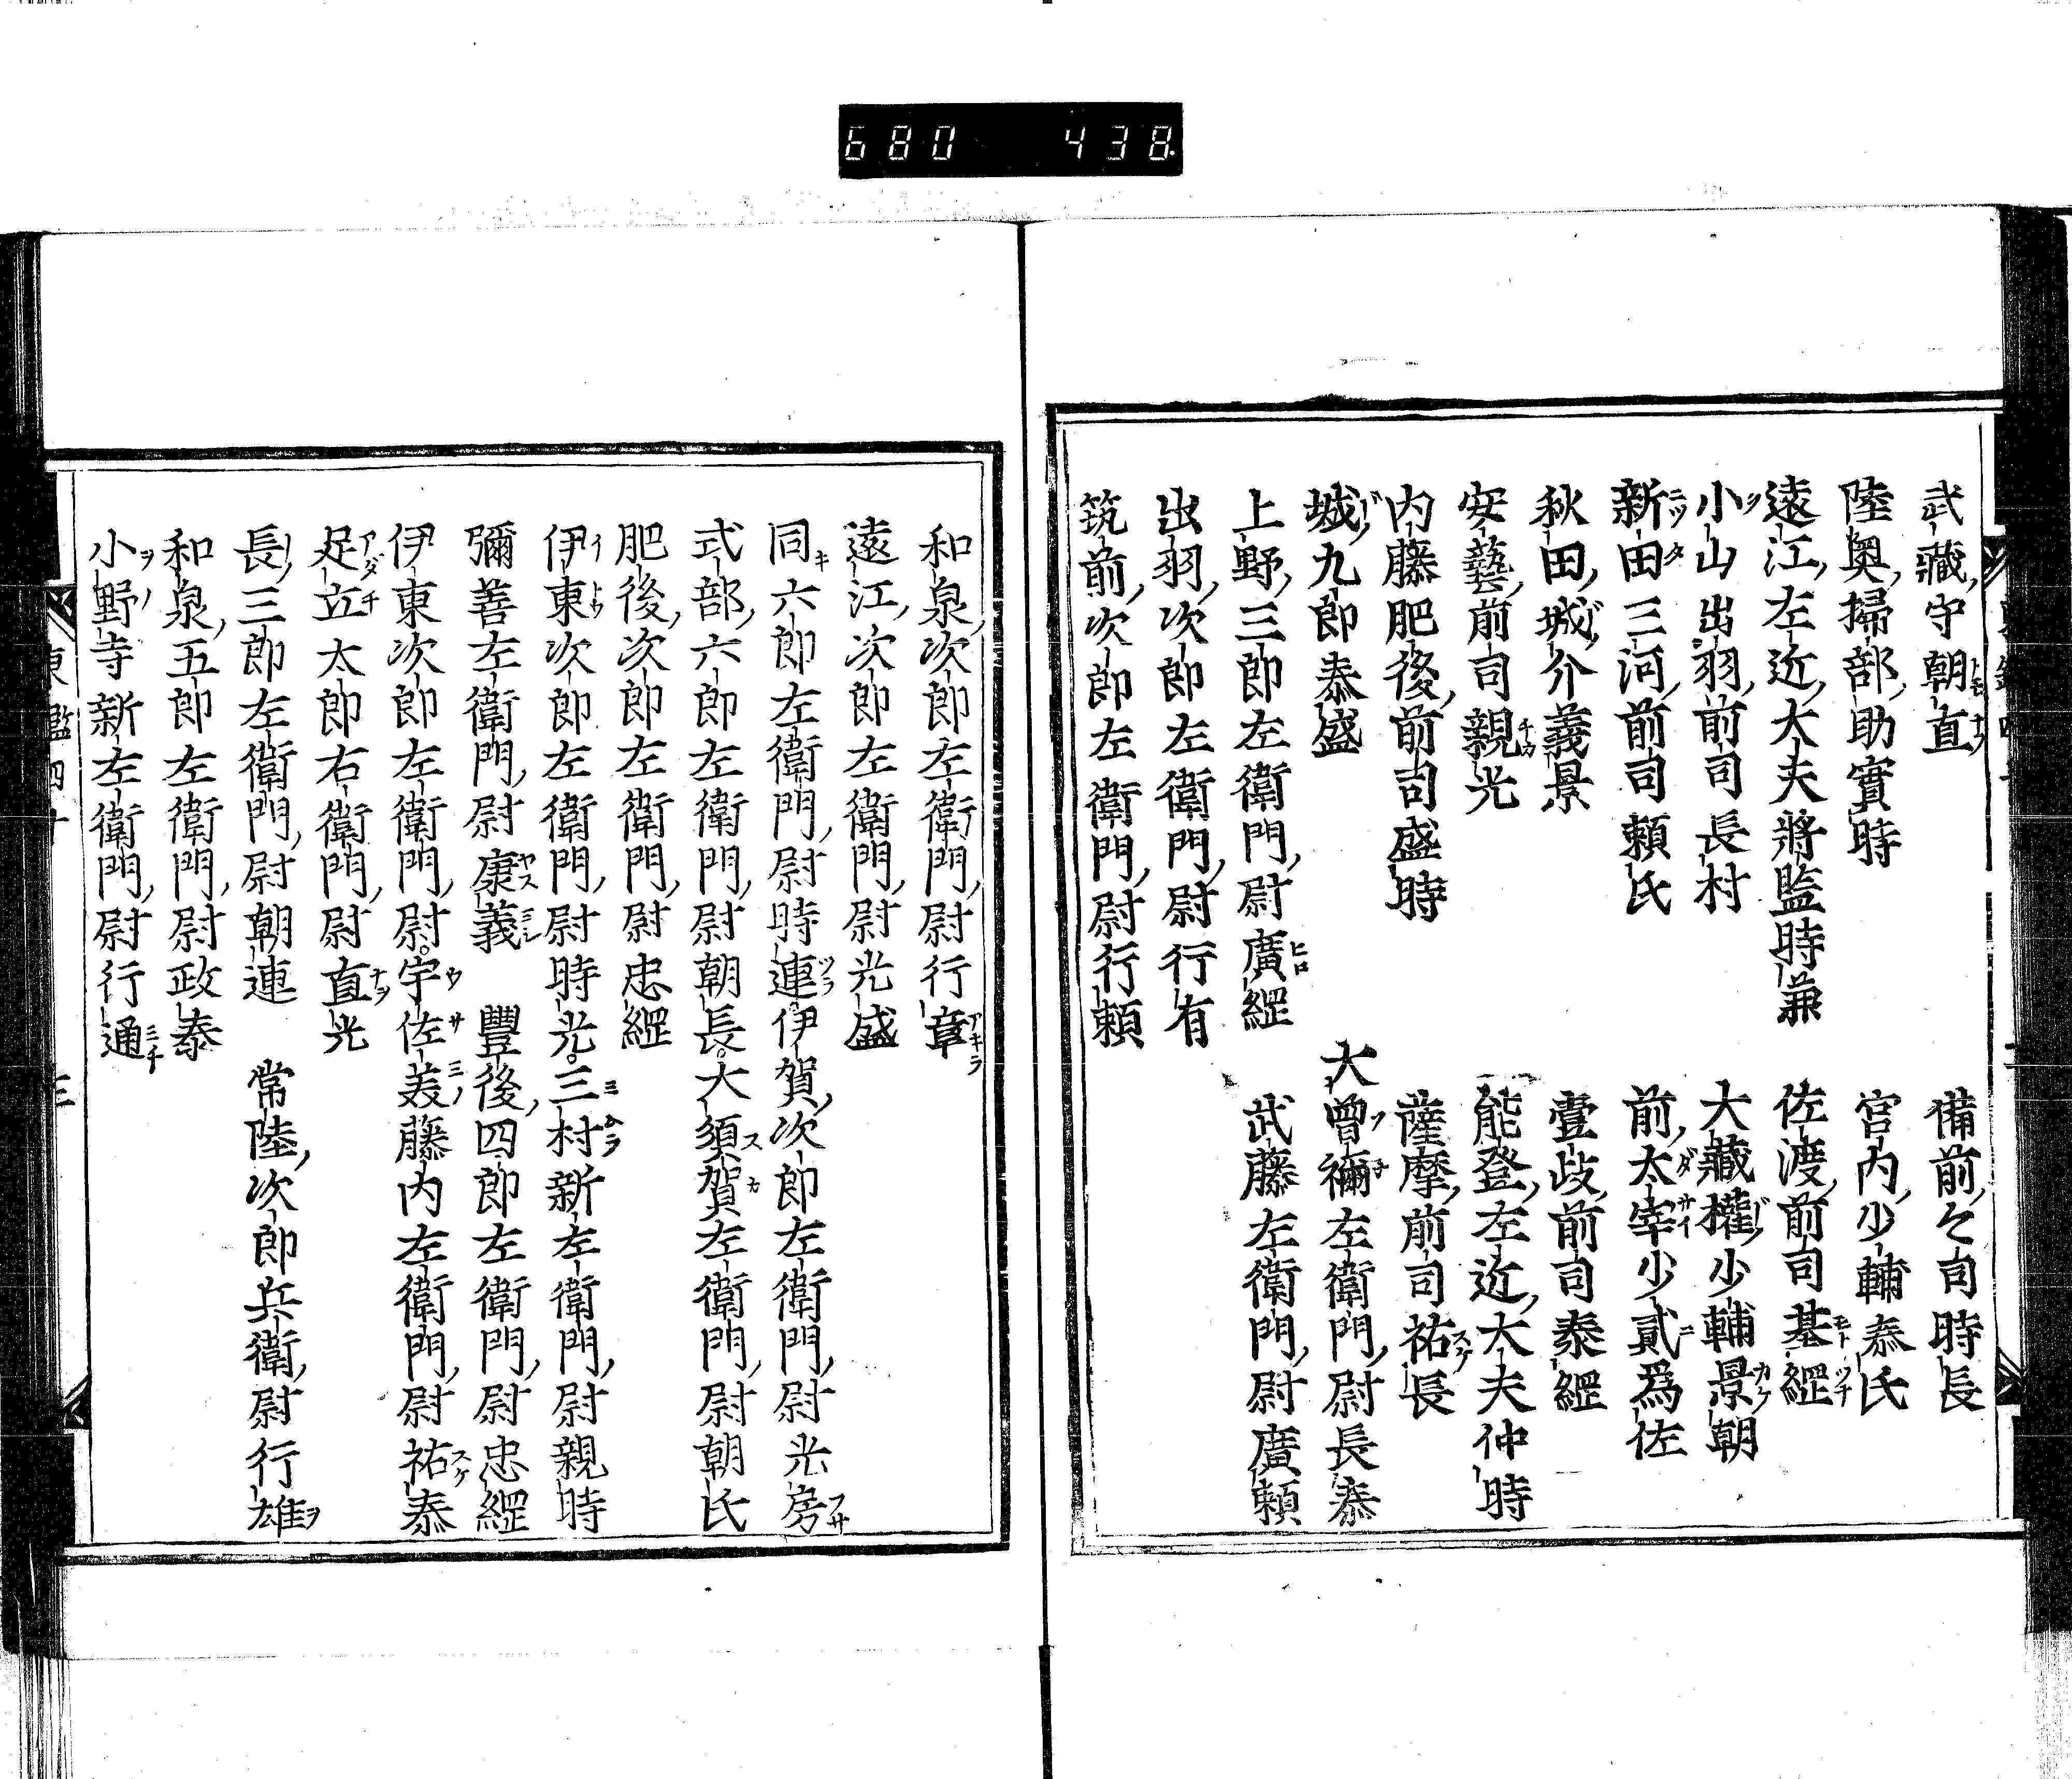 680 438
武藏守朝直 備前々司時長
陸奥掃部助實時 宮内少輔泰氏
遠江左近大夫將監時兼 佐渡前司基綱
小山出羽前司長村 大藏權少輔景朝
新田三河前司頼氏 前太宰少貳爲佐
秋田城介義景 壹岐前司泰綱
安藝前司親光 能登左近大夫仲時
内藤肥後前司盛時 薩摩前司祐長
城九郎泰盛 大曾禰左衛門尉長泰
上野三郎左衛門尉廣綱 武藤左衛門尉廣頼
出羽次郎左衛門尉行有
筑前次郎左衛門尉行頼
和泉次郎左衛門尉行章
遠江次郎左衛門尉光盛
同六郎左衛門尉時連。伊賀次郎左衛門尉光房
式部六郎左衛門尉朝長。大須賀左衛門尉朝氏
肥後次郎左衛門尉忠綱
伊東次郎左衛門尉時光。三村新左衛門尉親時
彌善左衛門尉康義 豐後四郎左衛門尉忠綱
伊東次郎左衛門尉。宇佐美藤内左衛門尉祐泰
足立太郎右衛門尉直光
長三郎左衛門尉朝連 常陸次郎兵衛尉行雄
和泉五郎左衛門尉政泰
小野寺新左衛門尉行通
東鑑四十 三